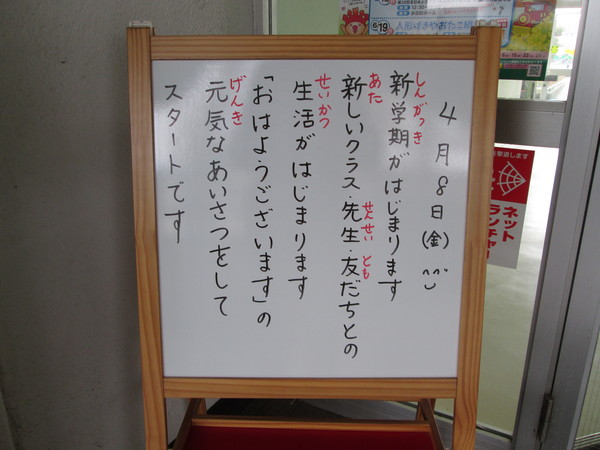 4月8日(金)
新学期がはじまります
しんがっき
新しいクラス・先生・友だちとの
あた
せんせい
とも
生活がはじまります
せいかつ
「おはようございます」の
元気なあいさつをして
げんき
スタートです
ネット
ランチャー
6/19